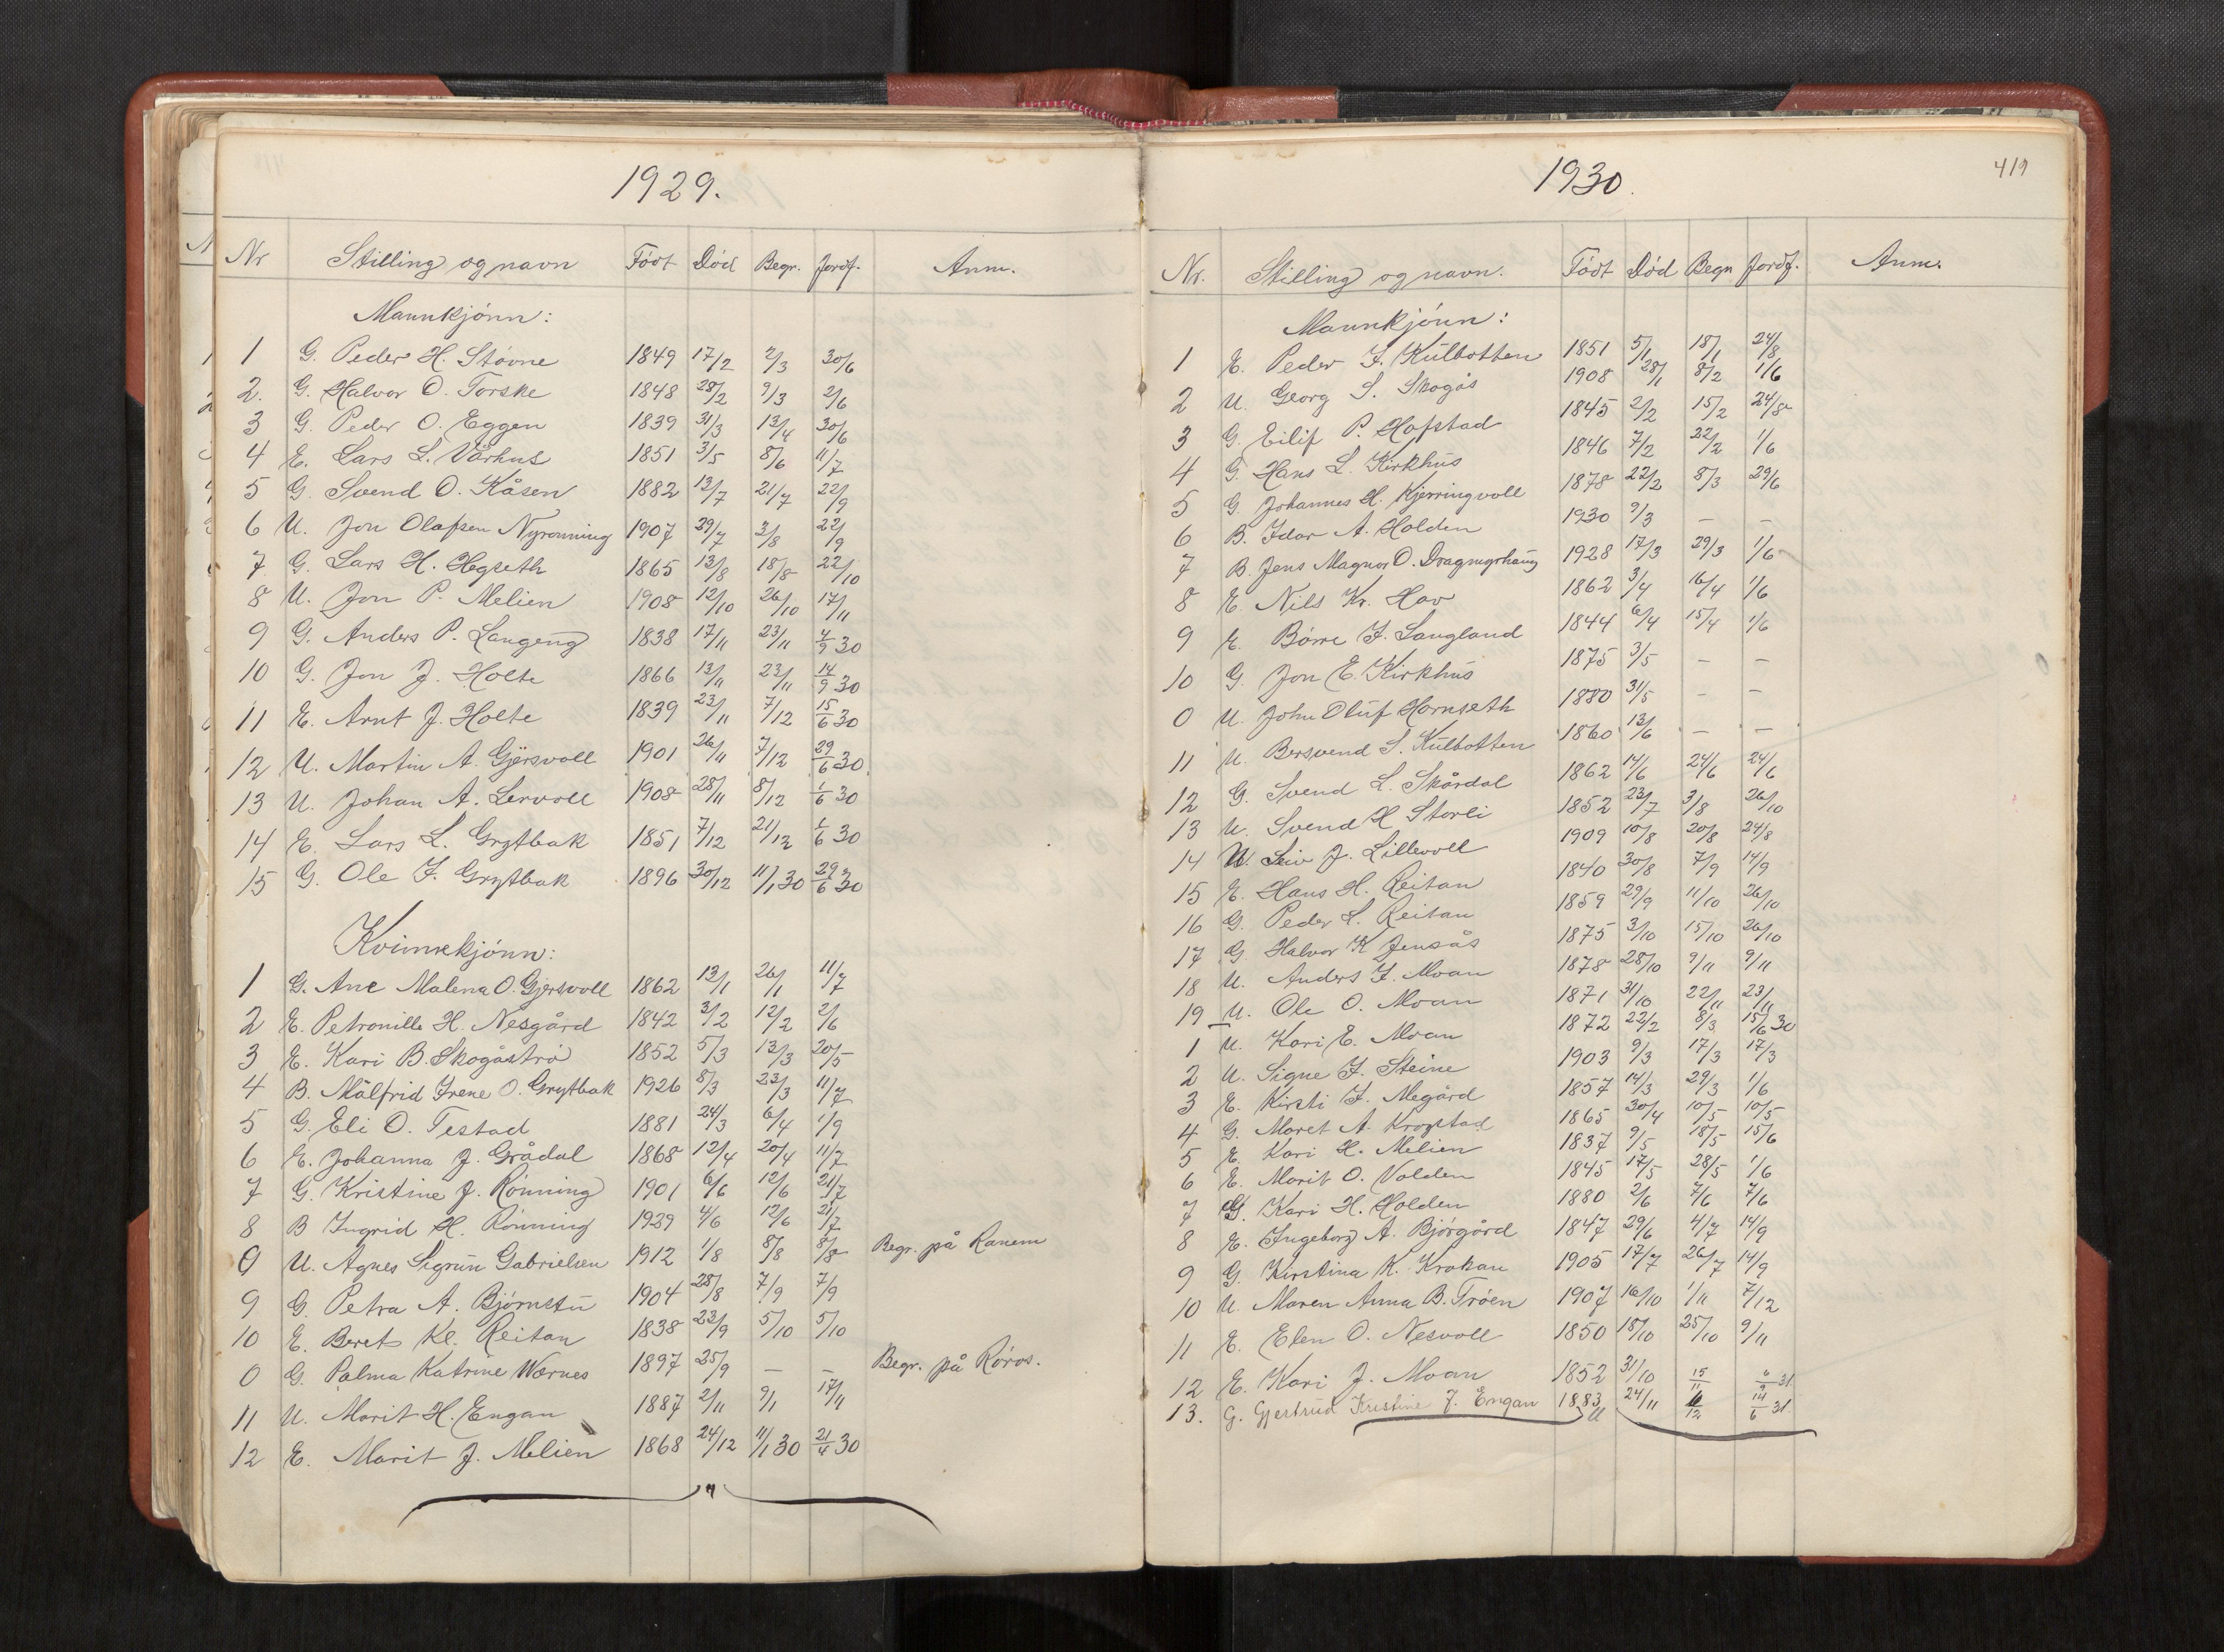 1929.
Nr Stilling og navn Födt Död Begr. Jordf. Anm.
Mannkjönn:
1 G. Peder H. Stövne 1849 17/2 2/3 30/6
2. G. Halvor O. Torske 1848 28/2 9/3 2/6
3 G. Peder O. Eggen 1839 31/3 13/4 30/6
4 E. Lars L. Vårhus 1851 3/5 8/6 11/7
5 G. Svend O. Kåsen 1882 13/7 21/7 22/9
6 U. Jon Olafsen Nyrönning 1907 29/7 3/8 22/9
7 G. Lars H. Hegseth 1865 13/8 18/8 22/10
8 U. Jon P. Melien 1908 12/10 26/10 17/11
9 G. Anders P. Langeng 1838 17/11 23/11 4/9 30
10 G. Jon J. Holte 1866 13/11 23/11 14/9 30
11 E. Arnt J. Holte 1839 23/11 7/12 15/6 30
12 U. Martin A. Gjersvoll 1901 26/11 7/12 29/6 30
13 U. Johan A. Lervoll 1908 28/11 8/12 1/6 30
14 E. Lars L. Grytbak 1851 7/12 21/12 1/6 30
15 G. Ole J. Grytbak 1896 30/12 11/1 30 29/6 30
Kvinnekjönn:
1 G. Ane Malena O. Gjersvoll 1862 13/1 26/1 11/7
2 E. Petronille H. Nesgård 1842 3/2 12/2 2/6
3 E. Kari B. Skogåströ 1852 5/3 13/3 20/5
4 B. Målfrid Irene O. Grytbak 1926 8/3 23/3 11/7
5 G. Eli O. Testad 1881 24/3 6/4 1/9
6 E. Johanna J. Grådal 1868 12/4 20/4 11/7
7 G. Kristine J. Rönning 1901 6/6 12/6 21/7
8 B Ingrid H. Rönning 1929 4/6 12/6 21/7
0 U. Agnes Sigrun Gabrielsen 1912 1/8 8/8 8/8 Begr. på Ranem
9 G. Petra A. Björnstu 1904 28/8 7/9 7/9
10 E. Beret Kl. Reitan 1838 23/9 5/10 5/10
0 G. Palma Katrine Wærnes 1897 25/9 — — Begr. på Röros.
11 U. Marit H. Engan 1887 2/11 9/1 17/11
12 E. Marit J. Melien 1868 24/12 11/1 30 21/4 30
1930. 419
Nr. Stilling og navn. Födt Död Begr Jordf. Anm.
Mannkjönn:
1 E. Peder J. Kulbotten 1851 5/1 18/1 24/8
2 U. Georg S. Skogås 1908 28/1 8/2 1/6
3 G. Eilif P. Hofstad 1845 2/2 15/2 24/8
4 G. Hans L. Kirkhus 1846 7/2 22/2 1/6
5 G. Johannes H. Kjerringvoll 1878 22/2 8/3 29/6
6 B. Idar A. Holden 1930 9/3 — —
7 B. Jens Magnor O. Dragmyrhaug 1928 17/3 29/3 1/6
8 E. Nils Kr. Hav 1862 3/4 16/4 1/6
9 E. Börre J. Langland 1844 6/4 15/4 1/6
10 G. Jon E. Kirkhus 1875 3/5 — —
0 U. John Oluf Hornseth 1880 31/5 — —
11 U. Bersvend S. Kulbotten 1860 13/6 — —
12 G. Svend L. Skårdal 1862 14/6 24/6 24/6
13 U. Svend H Storli 1852 23/7 3/8 26/10
14 U. Leiv J. Lillevoll 1909 10/8 20/8 24/8
15 E. Hans H. Reitan 1840 30/8 7/9 14/9
16 G. Peder L. Reitan 1859 29/9 11/10 26/10
17 G. Halvor K Jensås 1875 3/10 15/10 26/10
18 U. Anders J. Moan 1878 28/10 9/11 9/11
19 U. Ole O. Moan 1871 31/10 22/11 23/11
1 U. Kari E. Moan 1872 22/2 8/3 15/6 30
2 U. Signe J. Steine 1903 9/3 17/3 17/3
3 E. Kirsti J. Megård 1857 14/3 29/3 1/6
4 G. Maret A. Krogstad 1865 30/4 10/5 10/5
5 E. Kari H. Melien 1837 9/5 18/5 15/6
6 E. Marit O. Volden 1845 17/5 28/5 1/6
7 G. Kari H. Holden 1880 2/6 7/6 7/6
8 E. Ingeborg A. Björgård 1847 29/6 4/7 14/9
9 G. Kirstina K. Krokan 1905 17/7 26/7 14/9
10 U. Maren Anna B. Tröen 1907 16/10 1/11 7/12
11 E. Elen O. Nesvoll 1850 18/10 25/10 9/11
12 E. Kari J. Moan 1852 31/10 15/11 6/9 31
13. G. Gjertrud Kristine J. Engan 1883 24/11 6/12 14/6 31.